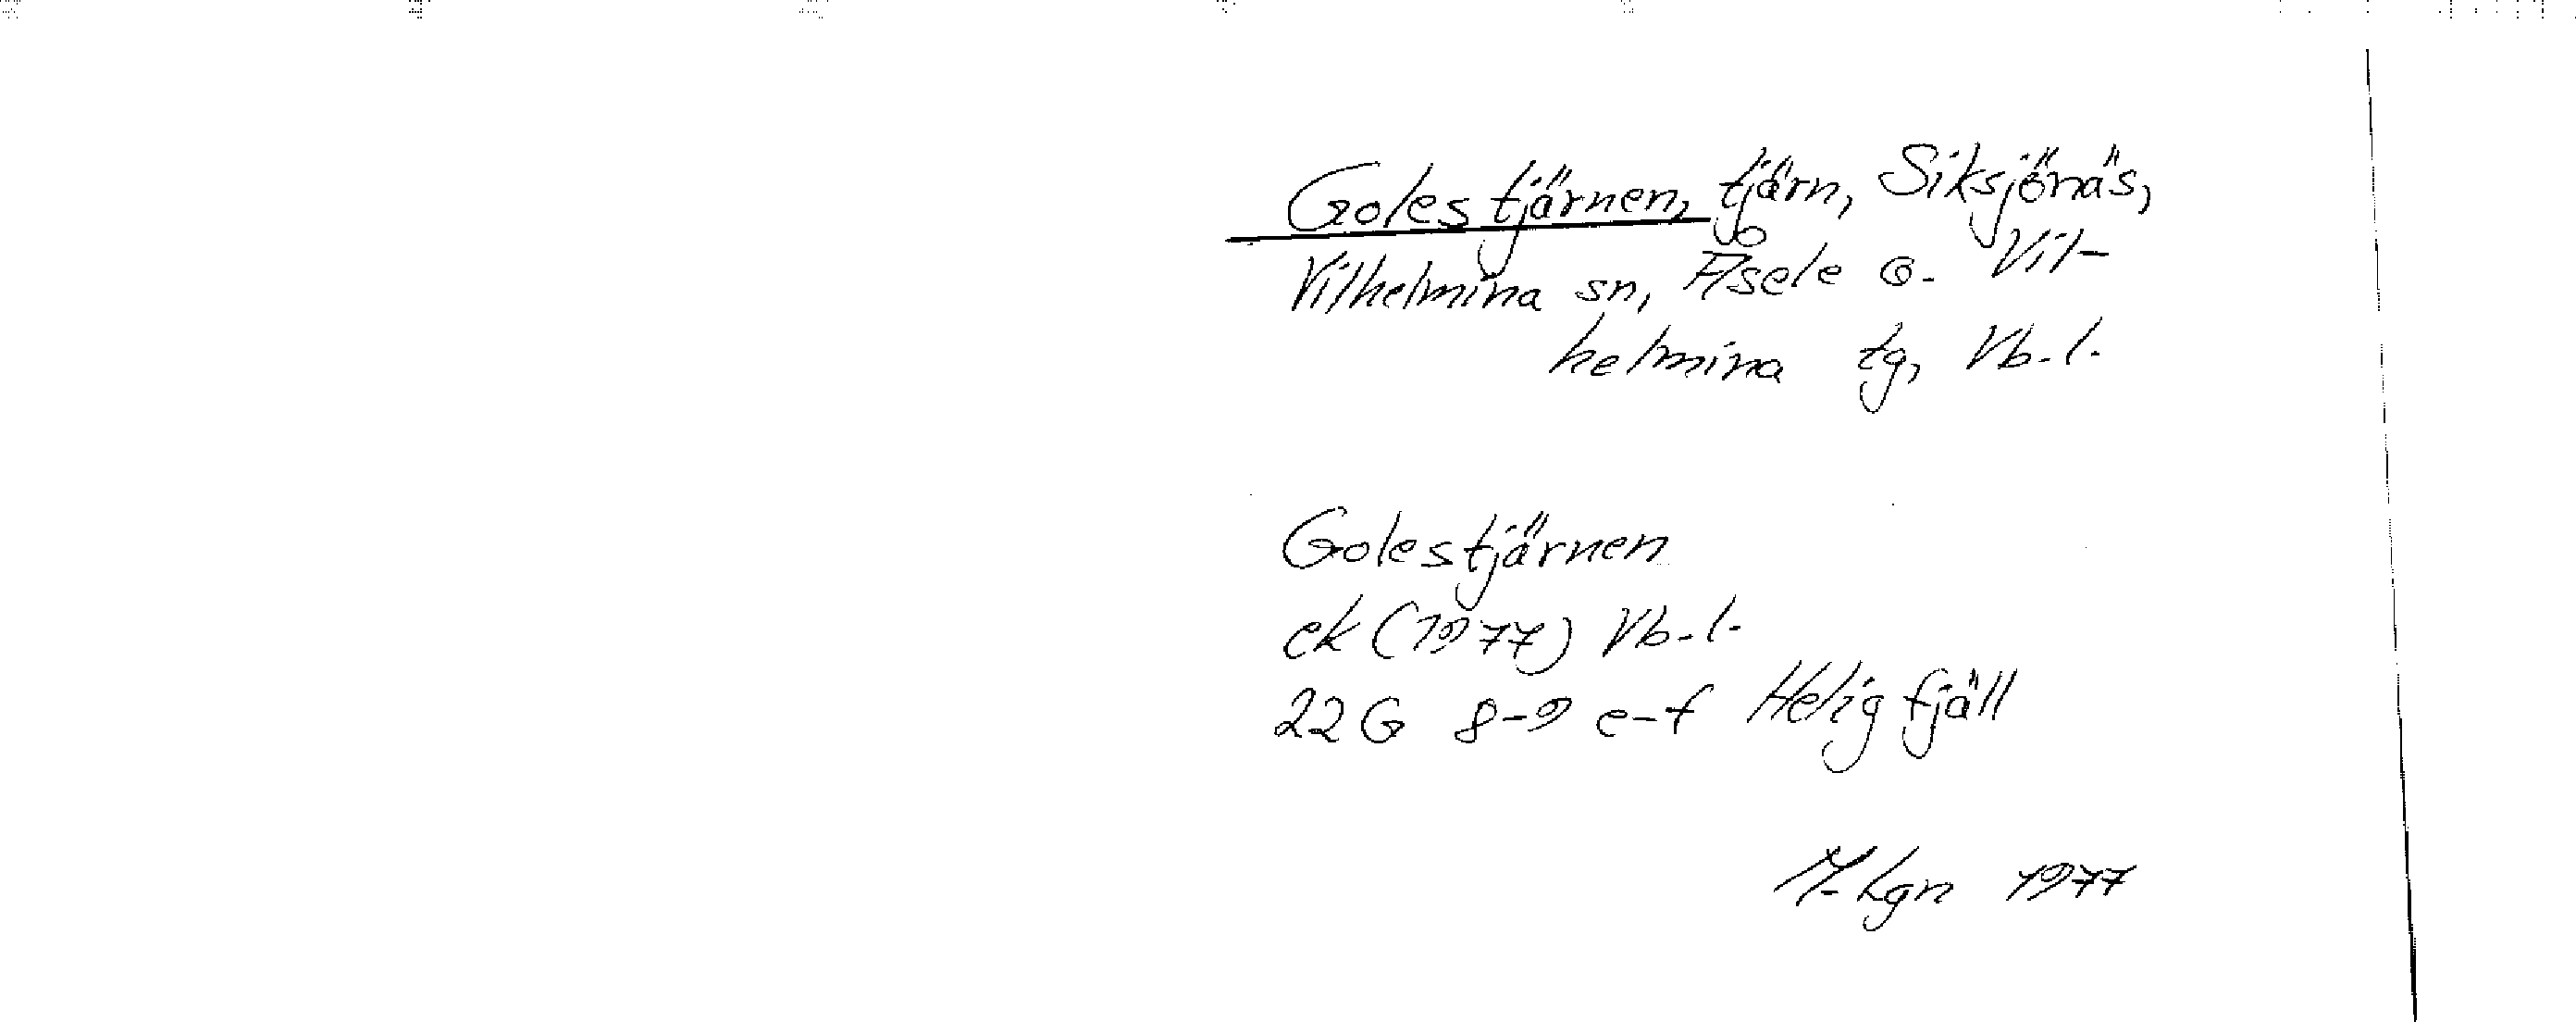 Golestjärnen, tjärn, Siksjönäs,
Vilhelmina sn, Åsele o. Vil-
helmina tg, Vb. l.
Golestjärnen
ek (1977) Vb. l.
22 G 8-9 e-f Heligfjäll
M. Lgn 1977